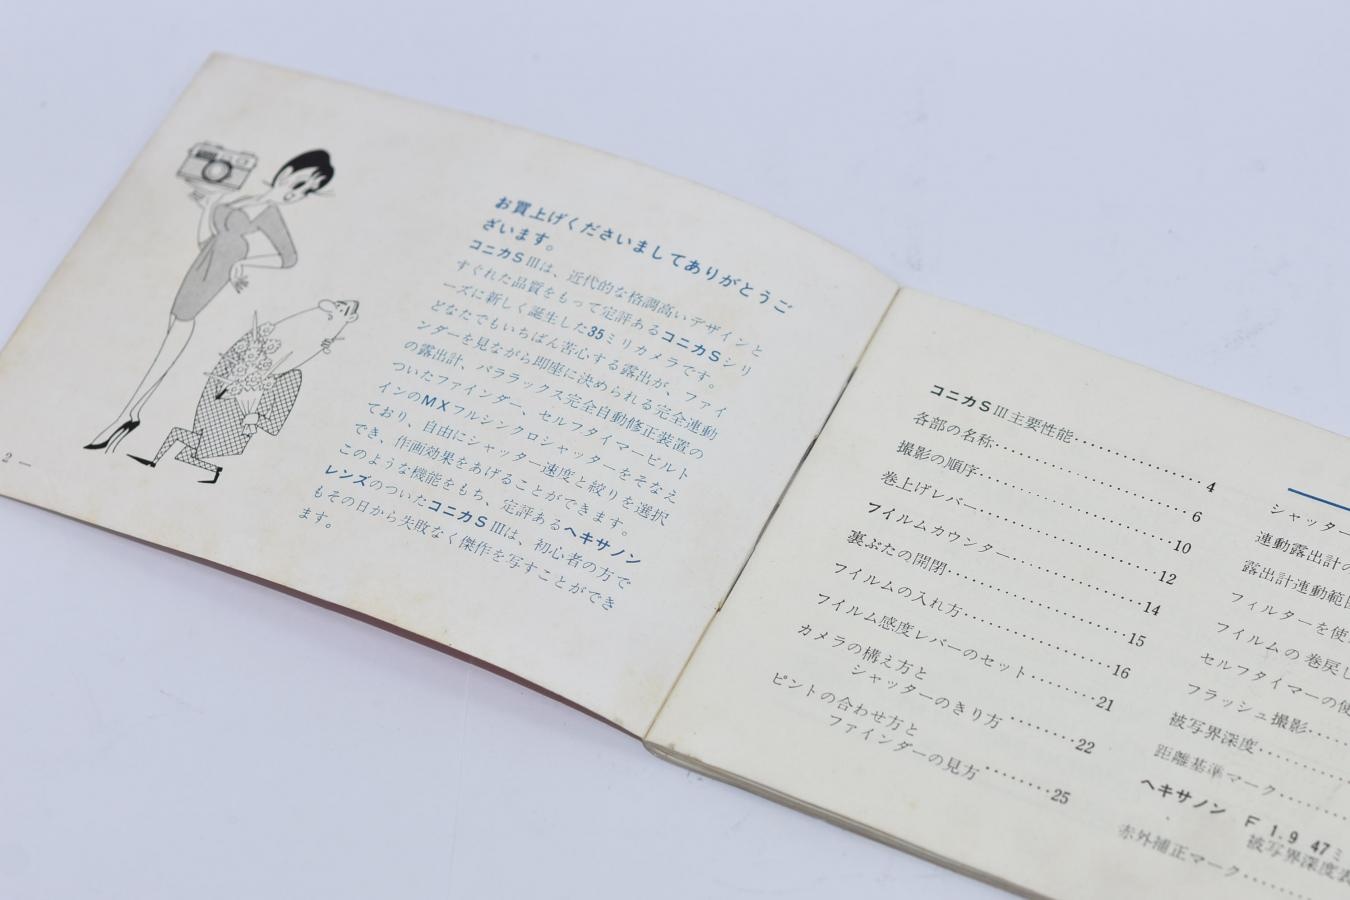 お買上げくださいましてありがとうご
ざいます。
コニカSⅢは、近代的な格調高いデザインと
すぐれた品質をもって定評あるコニカSシリ
ーズに新しく誕生した35ミリカメラです。
どなたでもいちばん苦心する露出が、ファイ
ンダーを見ながら即座に決められる完全連動
の露出計、パララックス完全自動修正装置の
ついたファインダー、セルフタイマービルト
インのMXフルシンクロシャッターをそなえ
ており、自由にシャッター速度と絞りを選択
でき、作画効果をあげることができます。
このような機能をもち、定評あるヘキサノン
レンズのついたコニカSⅢは、初心者の方で
もその日から失敗なく傑作を写すことができ
ます。
2 —
コニカSⅢ主要性能‥‥‥‥‥‥4
各部の名称‥‥‥‥‥‥6
撮影の順序‥‥‥‥‥‥10
巻上げレバー‥‥‥‥‥‥12
フイルムカウンター‥‥‥‥‥‥14
裏ぶたの開閉‥‥‥‥‥‥15
フイルムの入れ方‥‥‥‥‥‥16
フイルム感度レバーのセット‥‥‥‥21
カメラの構え方と
シャッターのきり方‥‥‥‥22
ピントの合わせ方と
ファインダーの見方‥‥‥‥25
シャッター
連動露出計の
露出計連動範囲
フィルターを使
フイルムの巻戻し
セルフタイマーの使
フラッシュ撮影‥‥
被写界深度‥‥‥‥
距離基準マーク‥‥‥‥
ヘキサノン F 1.9 47ミ
被写界深度表
赤外補正マーク‥‥‥‥